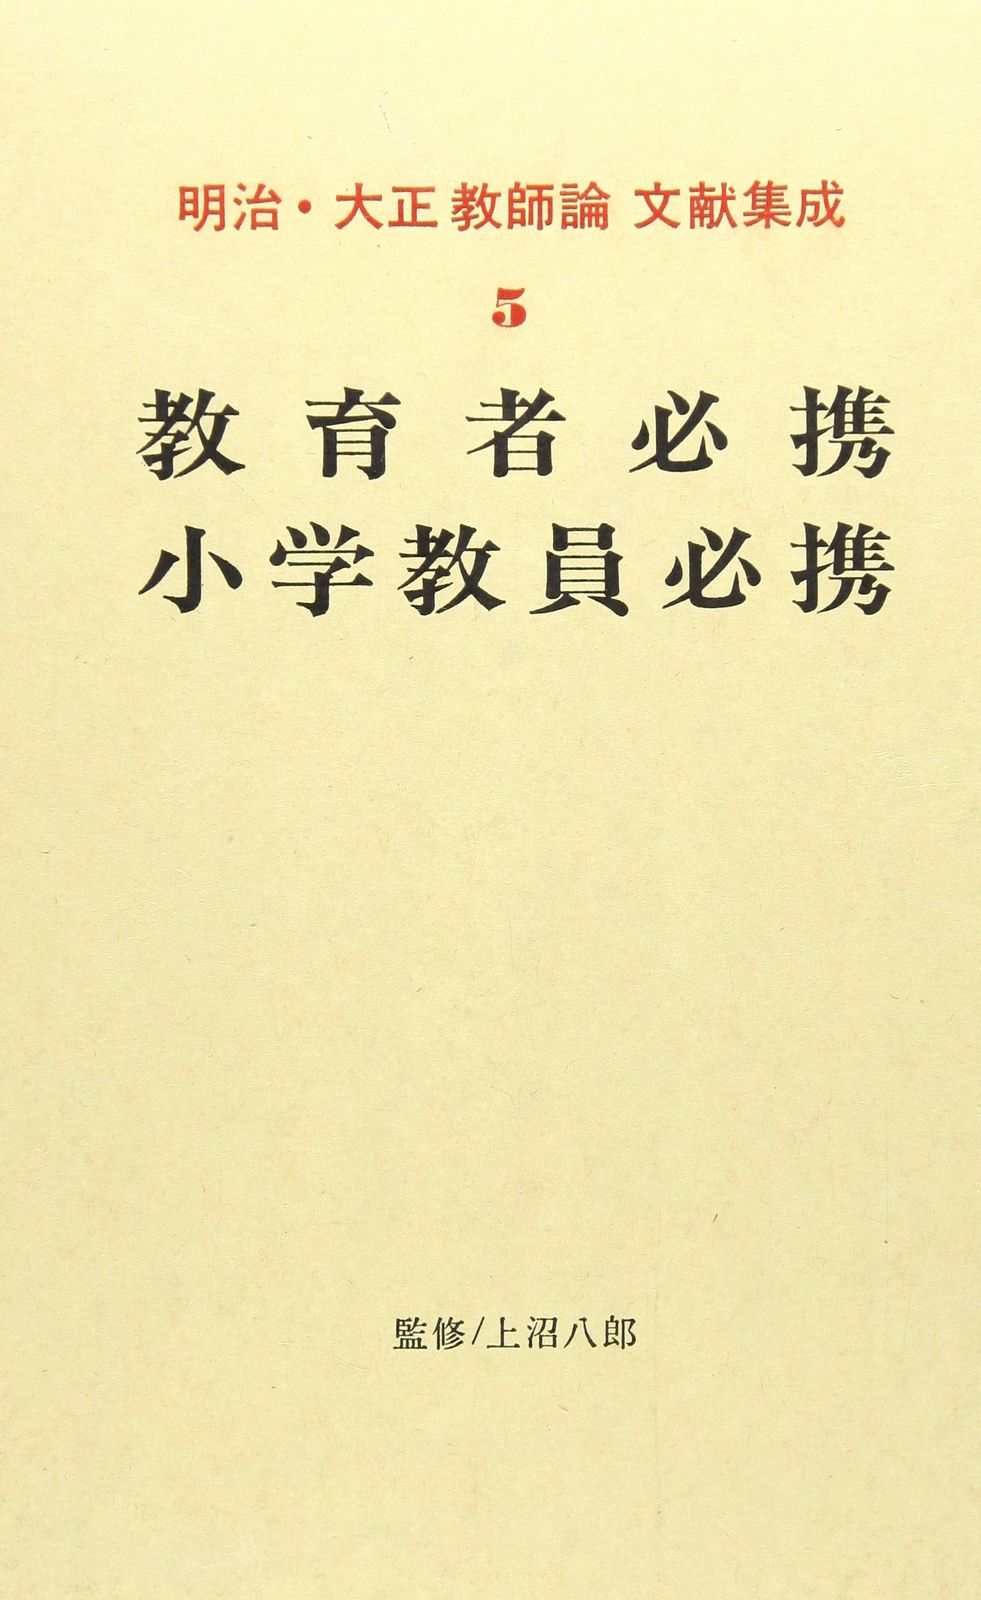 明治・大正教師論 文献集成
5
教育者必携
小学教員必携
監修/上沼八郎